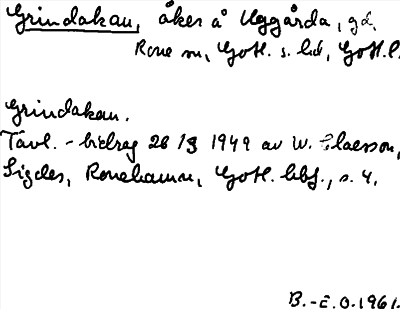 Grindakau, åker å Uggårda, gd,
Rone sn, Gotl. s. hd, Gotl. l.
Grindakau.
Tävl.-bidrag 26/3 1949 av W. Claesson,
Sigdes, Ronehamn, Gotl. bibl., s. 4.
B.-E.O. 1961.